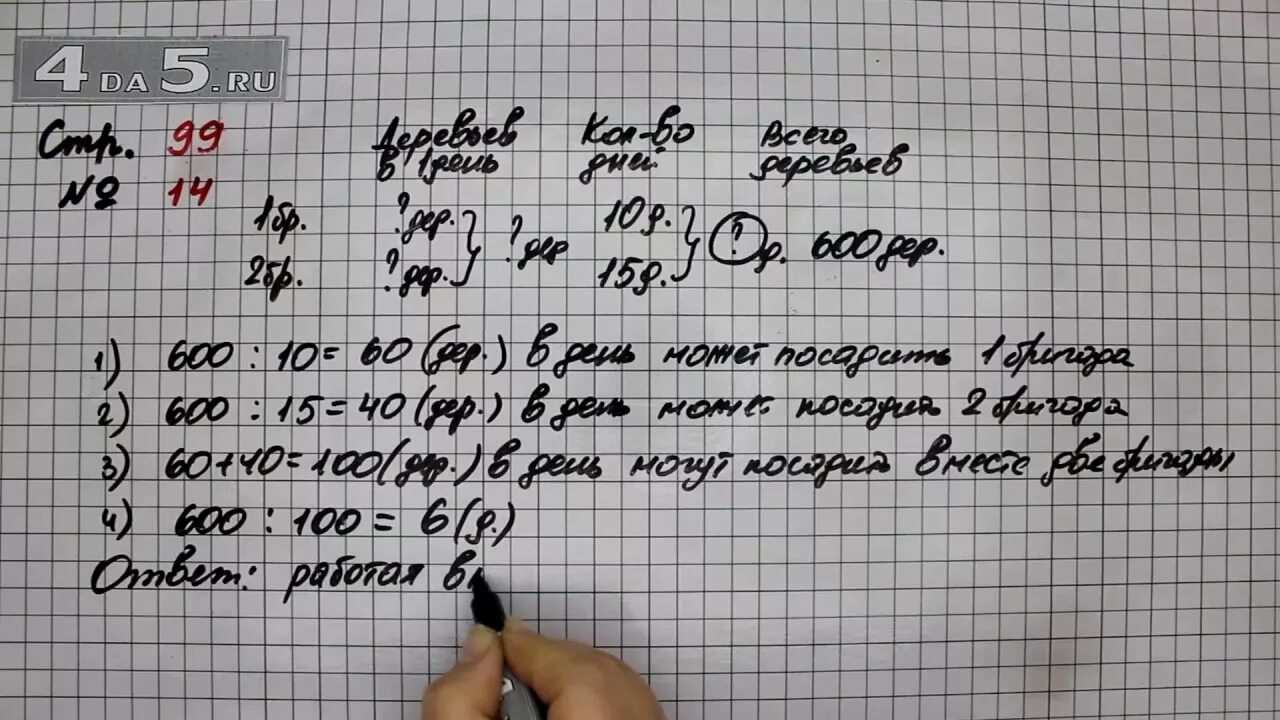 4DA5.RU
Стр. 99
№ 14
Деревьев в 1 день
Кол-во дней
Всего деревьев
1 бр. ? дер. ? дер 10 д. ? д. 600 дер.
2 бр. ? дер. 15 д.
1) 600 : 10 = 60 (дер.) в день может посадить 1 бригада
2) 600 : 15 = 40 (дер.) в день может посадить 2 бригада
3) 60 + 40 = 100 (дер.) в день могут посадить вместе две бригады
4) 600 : 100 = 6 (д.)
Ответ: работая в